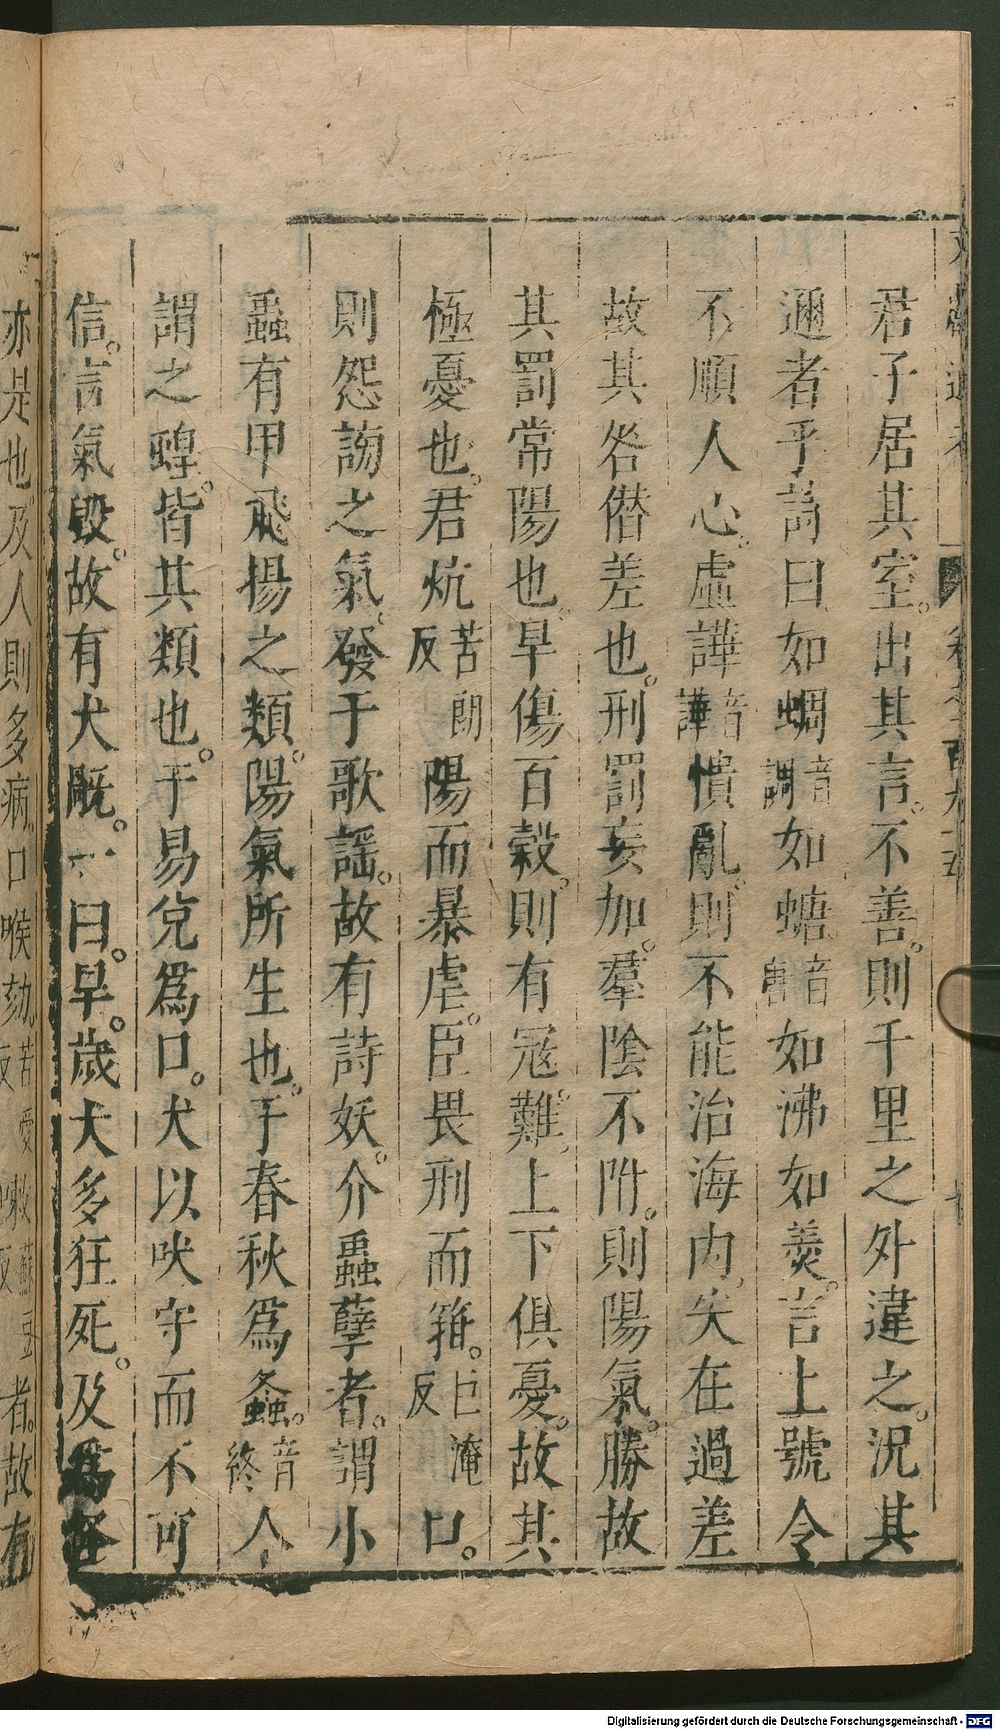 君子居其室。出其言。不善。則千里之外違之。況其
邇者乎詩曰如蜩音調如螗。音唐如沸如羮。言上號令
不順人心。虛譁音譁憒亂。則不能治海內。失在過差
故其咎僭差也。刑罰妄加。羣陰不附。則陽氣。勝故
其罰常陽也。旱傷百穀。則有冦難。上下俱憂。故其
極憂也。君炕苦朗反陽而暴虐。臣畏刑而箝。巨淹反口。
則怨謗之氣。發于歌謡。故有詩妖。介蟲孽者。謂小
蟲有甲飛揚之類。陽氣所生也。于春秋爲螽。音終人
謂之蝗。皆其類也。于易兌爲口。犬以吠守而不可
信。言氣毀。故有犬旤。一曰。旱。歲犬多狂死。及爲怪
亦是也及人則多病。口喉劾。苦愛反嗽蘇豆反者。故有
Digitalisierung gefördert durch die Deutsche Forschungsgemeinschaft - DFG